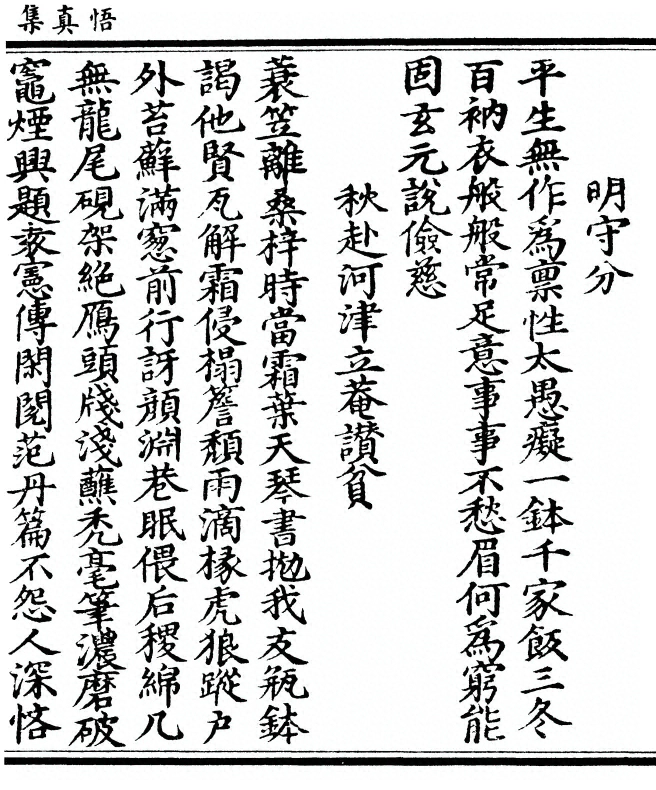 悟真集
明守分
平生無作為禀性太愚癡一鉢千家飯三冬
百衲衣般般常足意事事不愁眉何為窮能
固玄元說儉慈
秋赴河津立菴讃貧
蓑笠離桑梓時當霜葉天琴書抛我友瓶鉢
謁他賢瓦解霜侵榻簷頹雨滴椽虎狼蹤戶
外苔蘚滿窓前行訝顏淵巷眠偎后稷綿几
無龍尾硯架絕鴈頭牋淺蘸禿毫筆濃磨破
竈煙興題袁憲傳閑閱范丹篇不怨人深悋